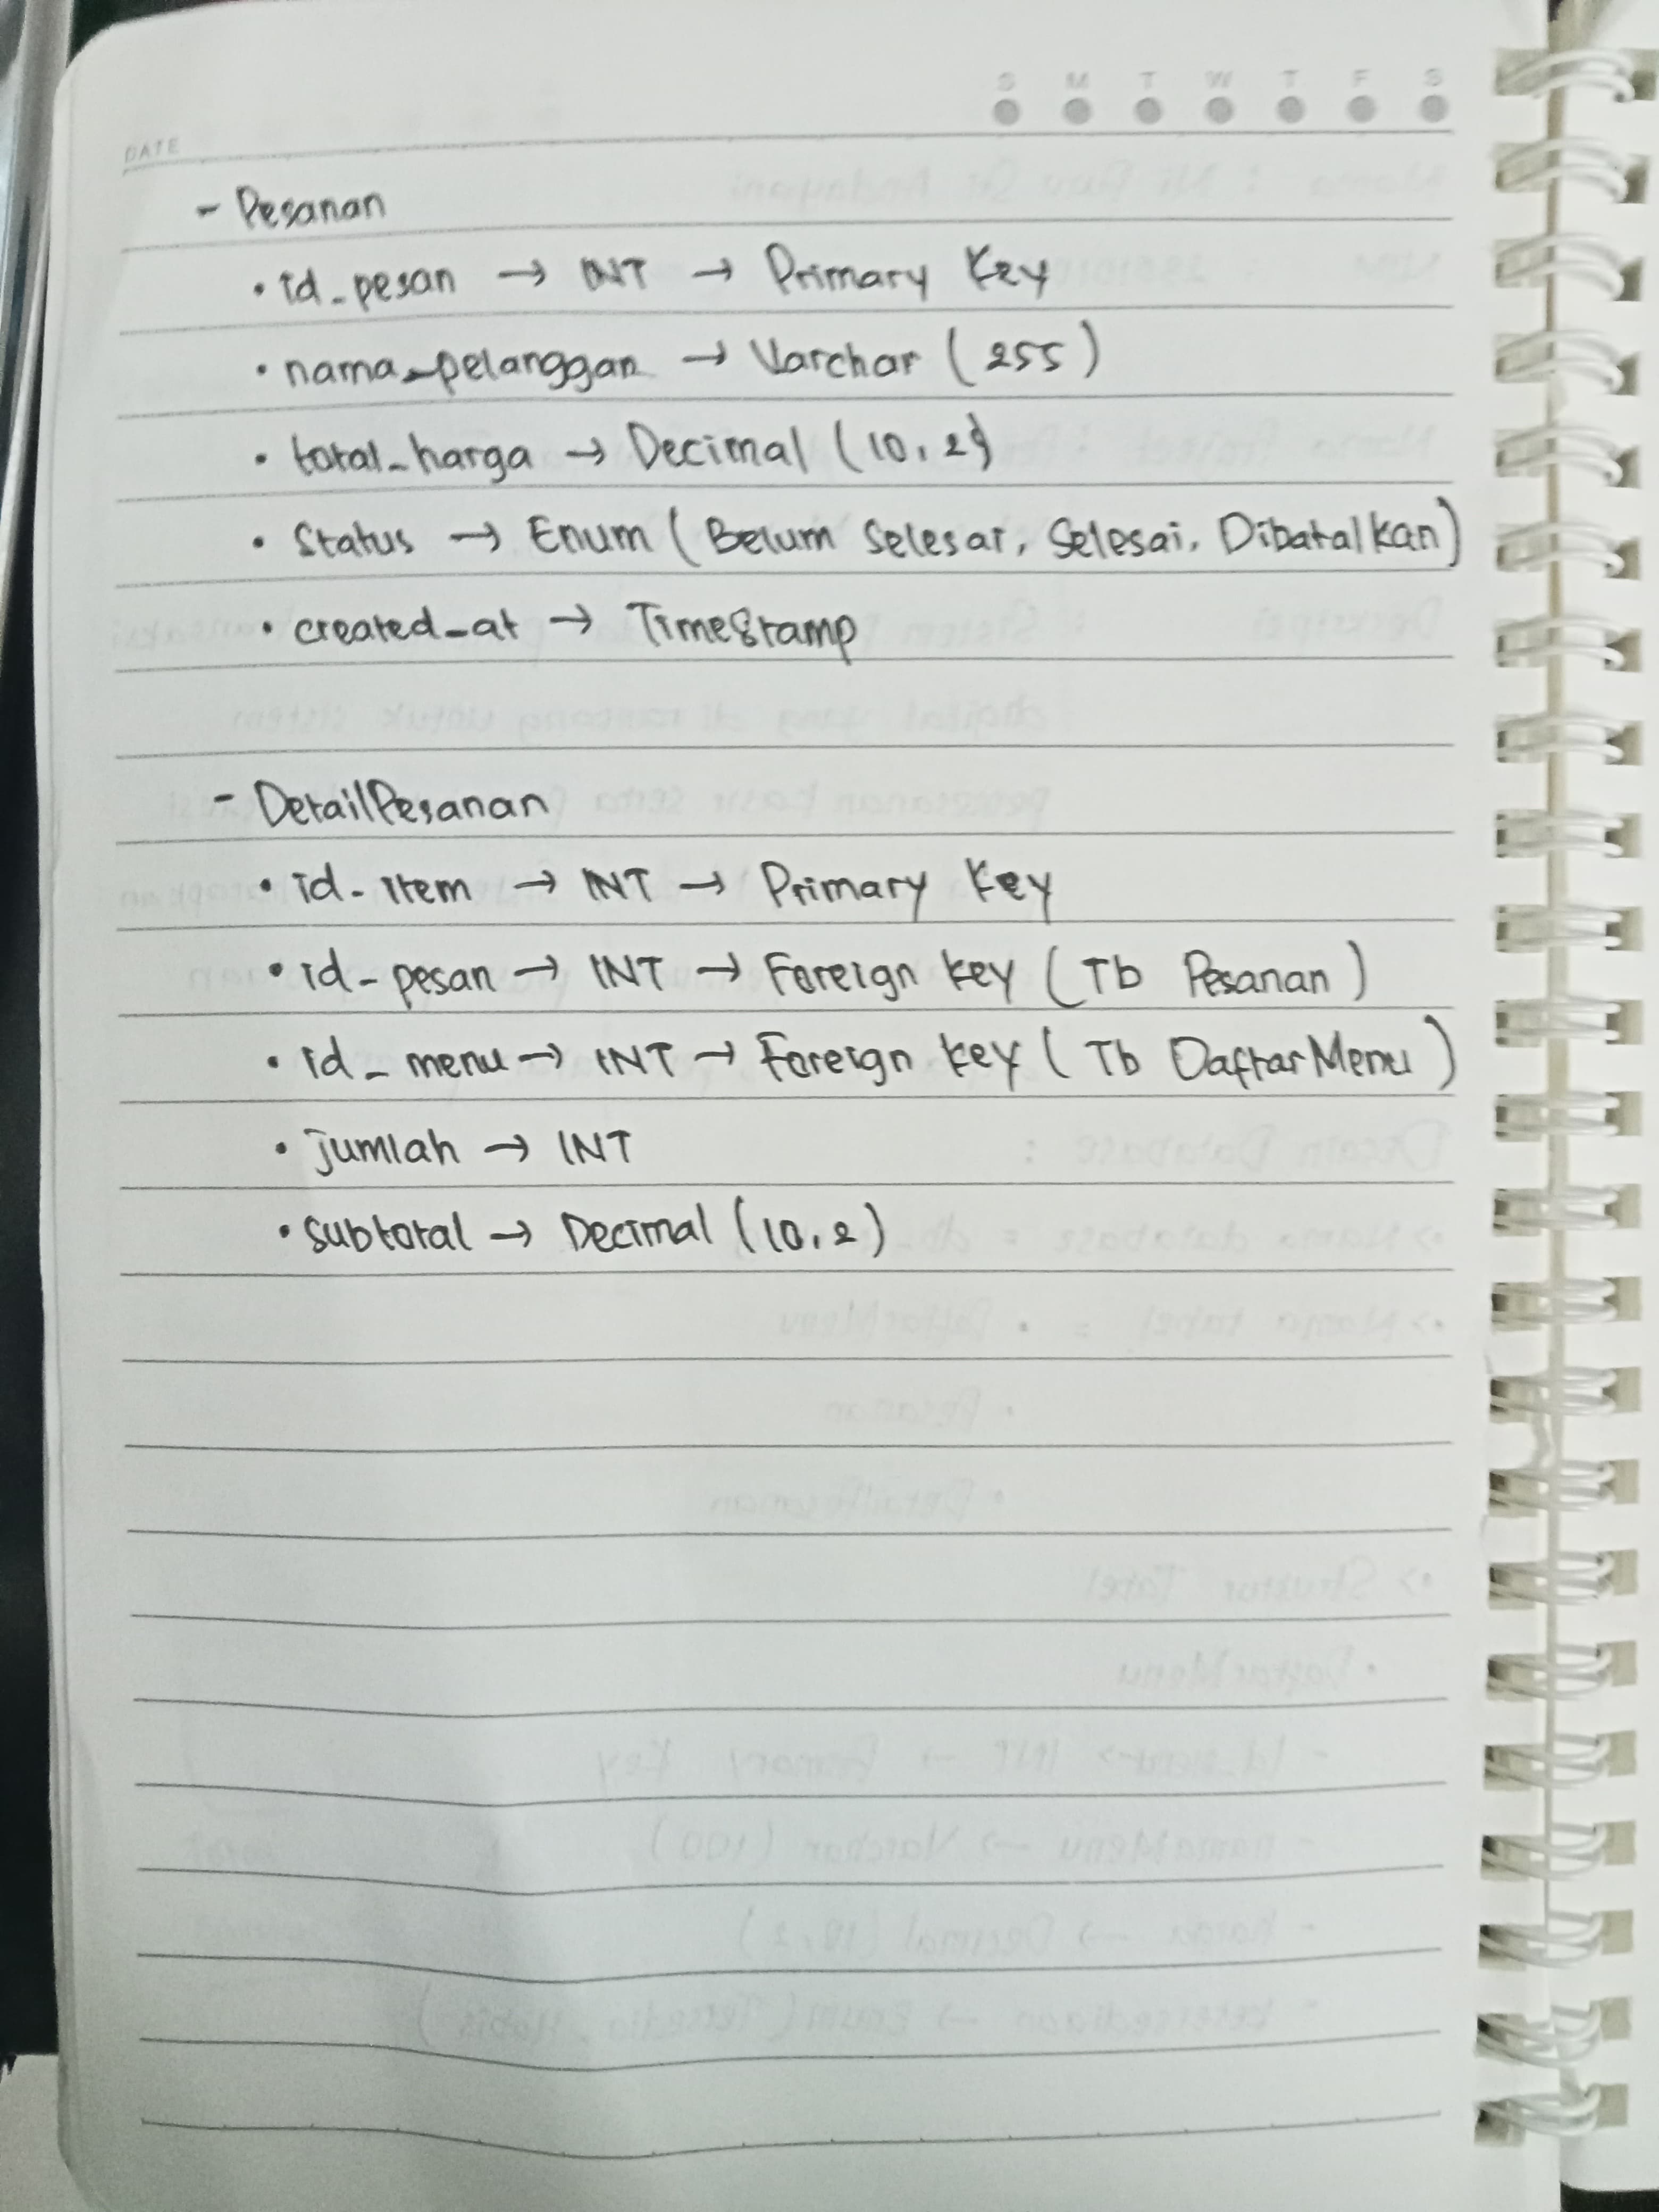 S M T W T F S
DATE
- Pesanan
• id_pesan → INT → Primary Key
• nama_pelanggan → Varchar (255)
• total_harga → Decimal (10, 2)
• Status → Enum (Belum Selesai, Selesai, Dibatalkan)
• created_at → Timestamp
- DetailPesanan
• id_item → INT → Primary Key
• id_pesan → INT → Foreign key (Tb Pesanan)
• id_menu → INT → Foreign key (Tb DaftarMenu)
• jumlah → INT
• subtotal → Decimal (10, 2)